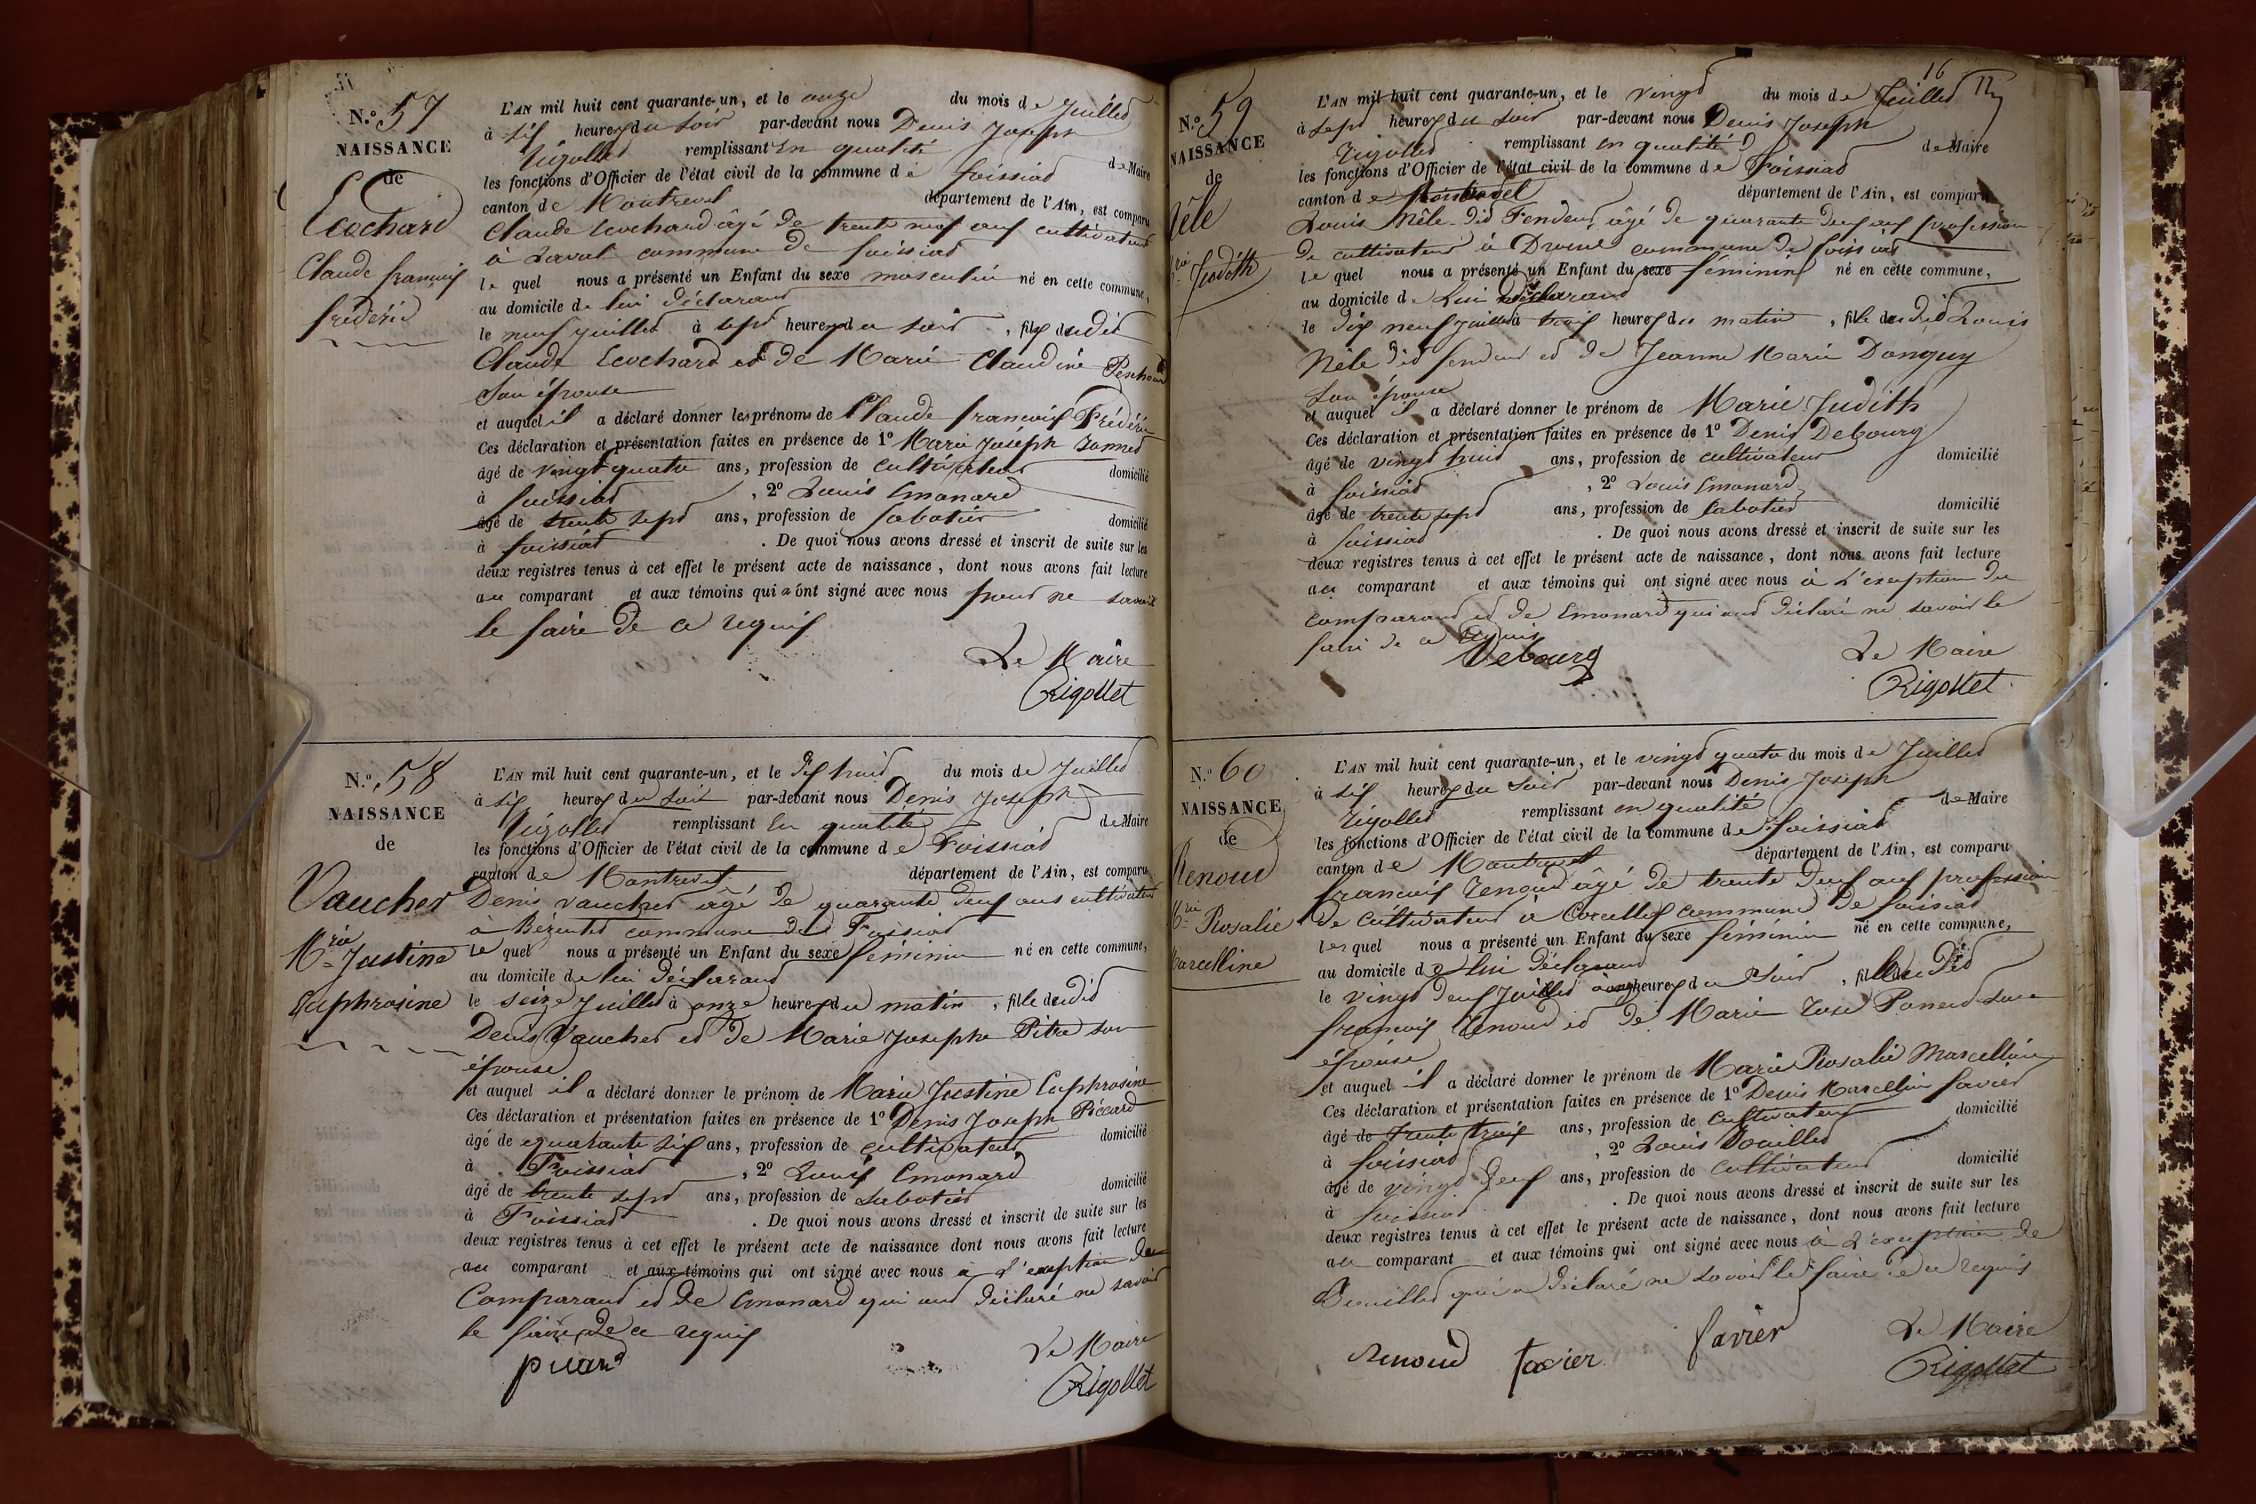 N.º 57
NAISSANCE
de
Ecochard
Claude françois
frédéric
L'AN mil huit cent quarante-un, et le onze du mois de Juillet
à six heures du soir par-devant nous Denis Joseph
Rigollet remplissant en qualité de Maire
les fonctions d'Officier de l'état civil de la commune de foissiat
canton de Montrevel département de l'Ain, est comparu
Claude Ecochard âgé de trente neuf ans cultivateur
à Laval commune de foissiat
le quel nous a présenté un Enfant du sexe masculin né en cette commune,
au domicile de lui déclarant
le neuf Juillet à sept heures du soir, fils dudit
Claude Ecochard et de Marie Claudine
Son épouse
et auquel il a déclaré donner les prénoms de Claude françois Frédéric
Ces déclaration et présentation faites en présence de 1º Marie Joseph
âgé de vingt quatre ans, profession de cultivateur domicilié
à foissiat, 2º Louis Emonard
âgé de trente sept ans, profession de sabotier domicilié
à foissiat. De quoi nous avons dressé et inscrit de suite sur les
deux registres tenus à cet effet le présent acte de naissance, dont nous avons fait lecture
au comparant et aux témoins qui n'ont signé avec nous pour ne savoir
le faire de ce requis
Le Maire
Rigollet
N.º 58
NAISSANCE
de
Vaucher
M.rie Justine
Euphrosine
L'AN mil huit cent quarante-un, et le dix huit du mois de Juillet
à six heures du soir par-devant nous Denis Joseph
Rigollet remplissant en qualité de Maire
les fonctions d'Officier de l'état civil de la commune de Foissiat
canton de Montrevel département de l'Ain, est comparu
Denis Vaucher âgé de quarante deux ans cultivateur
à Bézentet commune de Foissiat
le quel nous a présenté un Enfant du sexe féminin né en cette commune,
au domicile de lui déclarant
le seize Juillet à onze heures du matin, fille dudit
Denis Vaucher et de Marie Josephe Pitre son
épouse
et auquel il a déclaré donner le prénom de Marie Justine Euphrosine
Ces déclaration et présentation faites en présence de 1º Denis Joseph Piccard
âgé de quarante six ans, profession de cultivateur domicilié
à Foissiat, 2º Louis Emonard
âgé de trente sept ans, profession de sabotier domicilié
à Foissiat. De quoi nous avons dressé et inscrit de suite sur les
deux registres tenus à cet effet le présent acte de naissance dont nous avons fait lecture
au comparant et aux témoins qui ont signé avec nous à l'exception du
Comparant et de Emonard qui ont déclaré ne savoir
le faire de ce requis
Le Maire
Rigollet
16
N.º 59
NAISSANCE
de
Nêle
M.rie Judith
L'AN mil huit cent quarante-un, et le vingt du mois de Juillet
à sept heures du soir par-devant nous Denis Joseph
Rigollet remplissant en qualité de Maire
les fonctions d'Officier de l'état civil de la commune de Foissiat
canton de Montrevel département de l'Ain, est comparu
Louis Nêle dit Fendeur âgé de quarante deux ans profession
de cultivateur à commune de foissiat
le quel nous a présenté un Enfant du sexe féminin né en cette commune,
au domicile de Lui déclarant
le dix neuf Juillet à trois heures du matin, fille dudit Louis
Nêle dit fendeur et de Jeanne Marie Donguy
Son épouse
et auquel il a déclaré donner le prénom de Marie Judith
Ces déclaration et présentation faites en présence de 1º Denis Debourg
âgé de vingt huit ans, profession de cultivateur domicilié
à foissiat, 2º Louis Emonard
âgé de trente sept ans, profession de Sabotier domicilié
à foissiat. De quoi nous avons dressé et inscrit de suite sur les
deux registres tenus à cet effet le présent acte de naissance, dont nous avons fait lecture
au comparant et aux témoins qui ont signé avec nous à l'exception du
comparant et de Emonard qui ont déclaré ne savoir le
faire de ce requis
Debourg
Le Maire
Rigollet
N.º 60
NAISSANCE
de
Renoud
M.rie Rosalie
Marcelline
L'AN mil huit cent quarante-un, et le vingt quatre du mois de Juillet
à six heures du soir par-devant nous Denis Joseph
Rigollet remplissant en qualité de Maire
les fonctions d'Officier de l'état civil de la commune de foissiat
canton de Montrevel département de l'Ain, est comparu
françois Renoud âgé de trente deux ans profession
de cultivateur à Corcelles commune de foissiat
le quel nous a présenté un Enfant du sexe féminin né en cette commune,
au domicile de lui déclarant
le vingt deux Juillet à onze heures du soir, fille dudit
françois Renoud et de Marie Rose son
épouse
et auquel il a déclaré donner le prénom de Marie Rosalie Marcelline
Ces déclaration et présentation faites en présence de 1º Denis Marcellin favier
âgé de trente trois ans, profession de cultivateur domicilié
à foissiat, 2º Louis Douillet
âgé de vingt deux ans, profession de cultivateur domicilié
à foissiat. De quoi nous avons dressé et inscrit de suite sur les
deux registres tenus à cet effet le présent acte de naissance, dont nous avons fait lecture
au comparant et aux témoins qui ont signé avec nous à l'exception de
Douillet qui a déclaré ne savoir le faire de ce requis
renoud favier favier
Le Maire
Rigollet